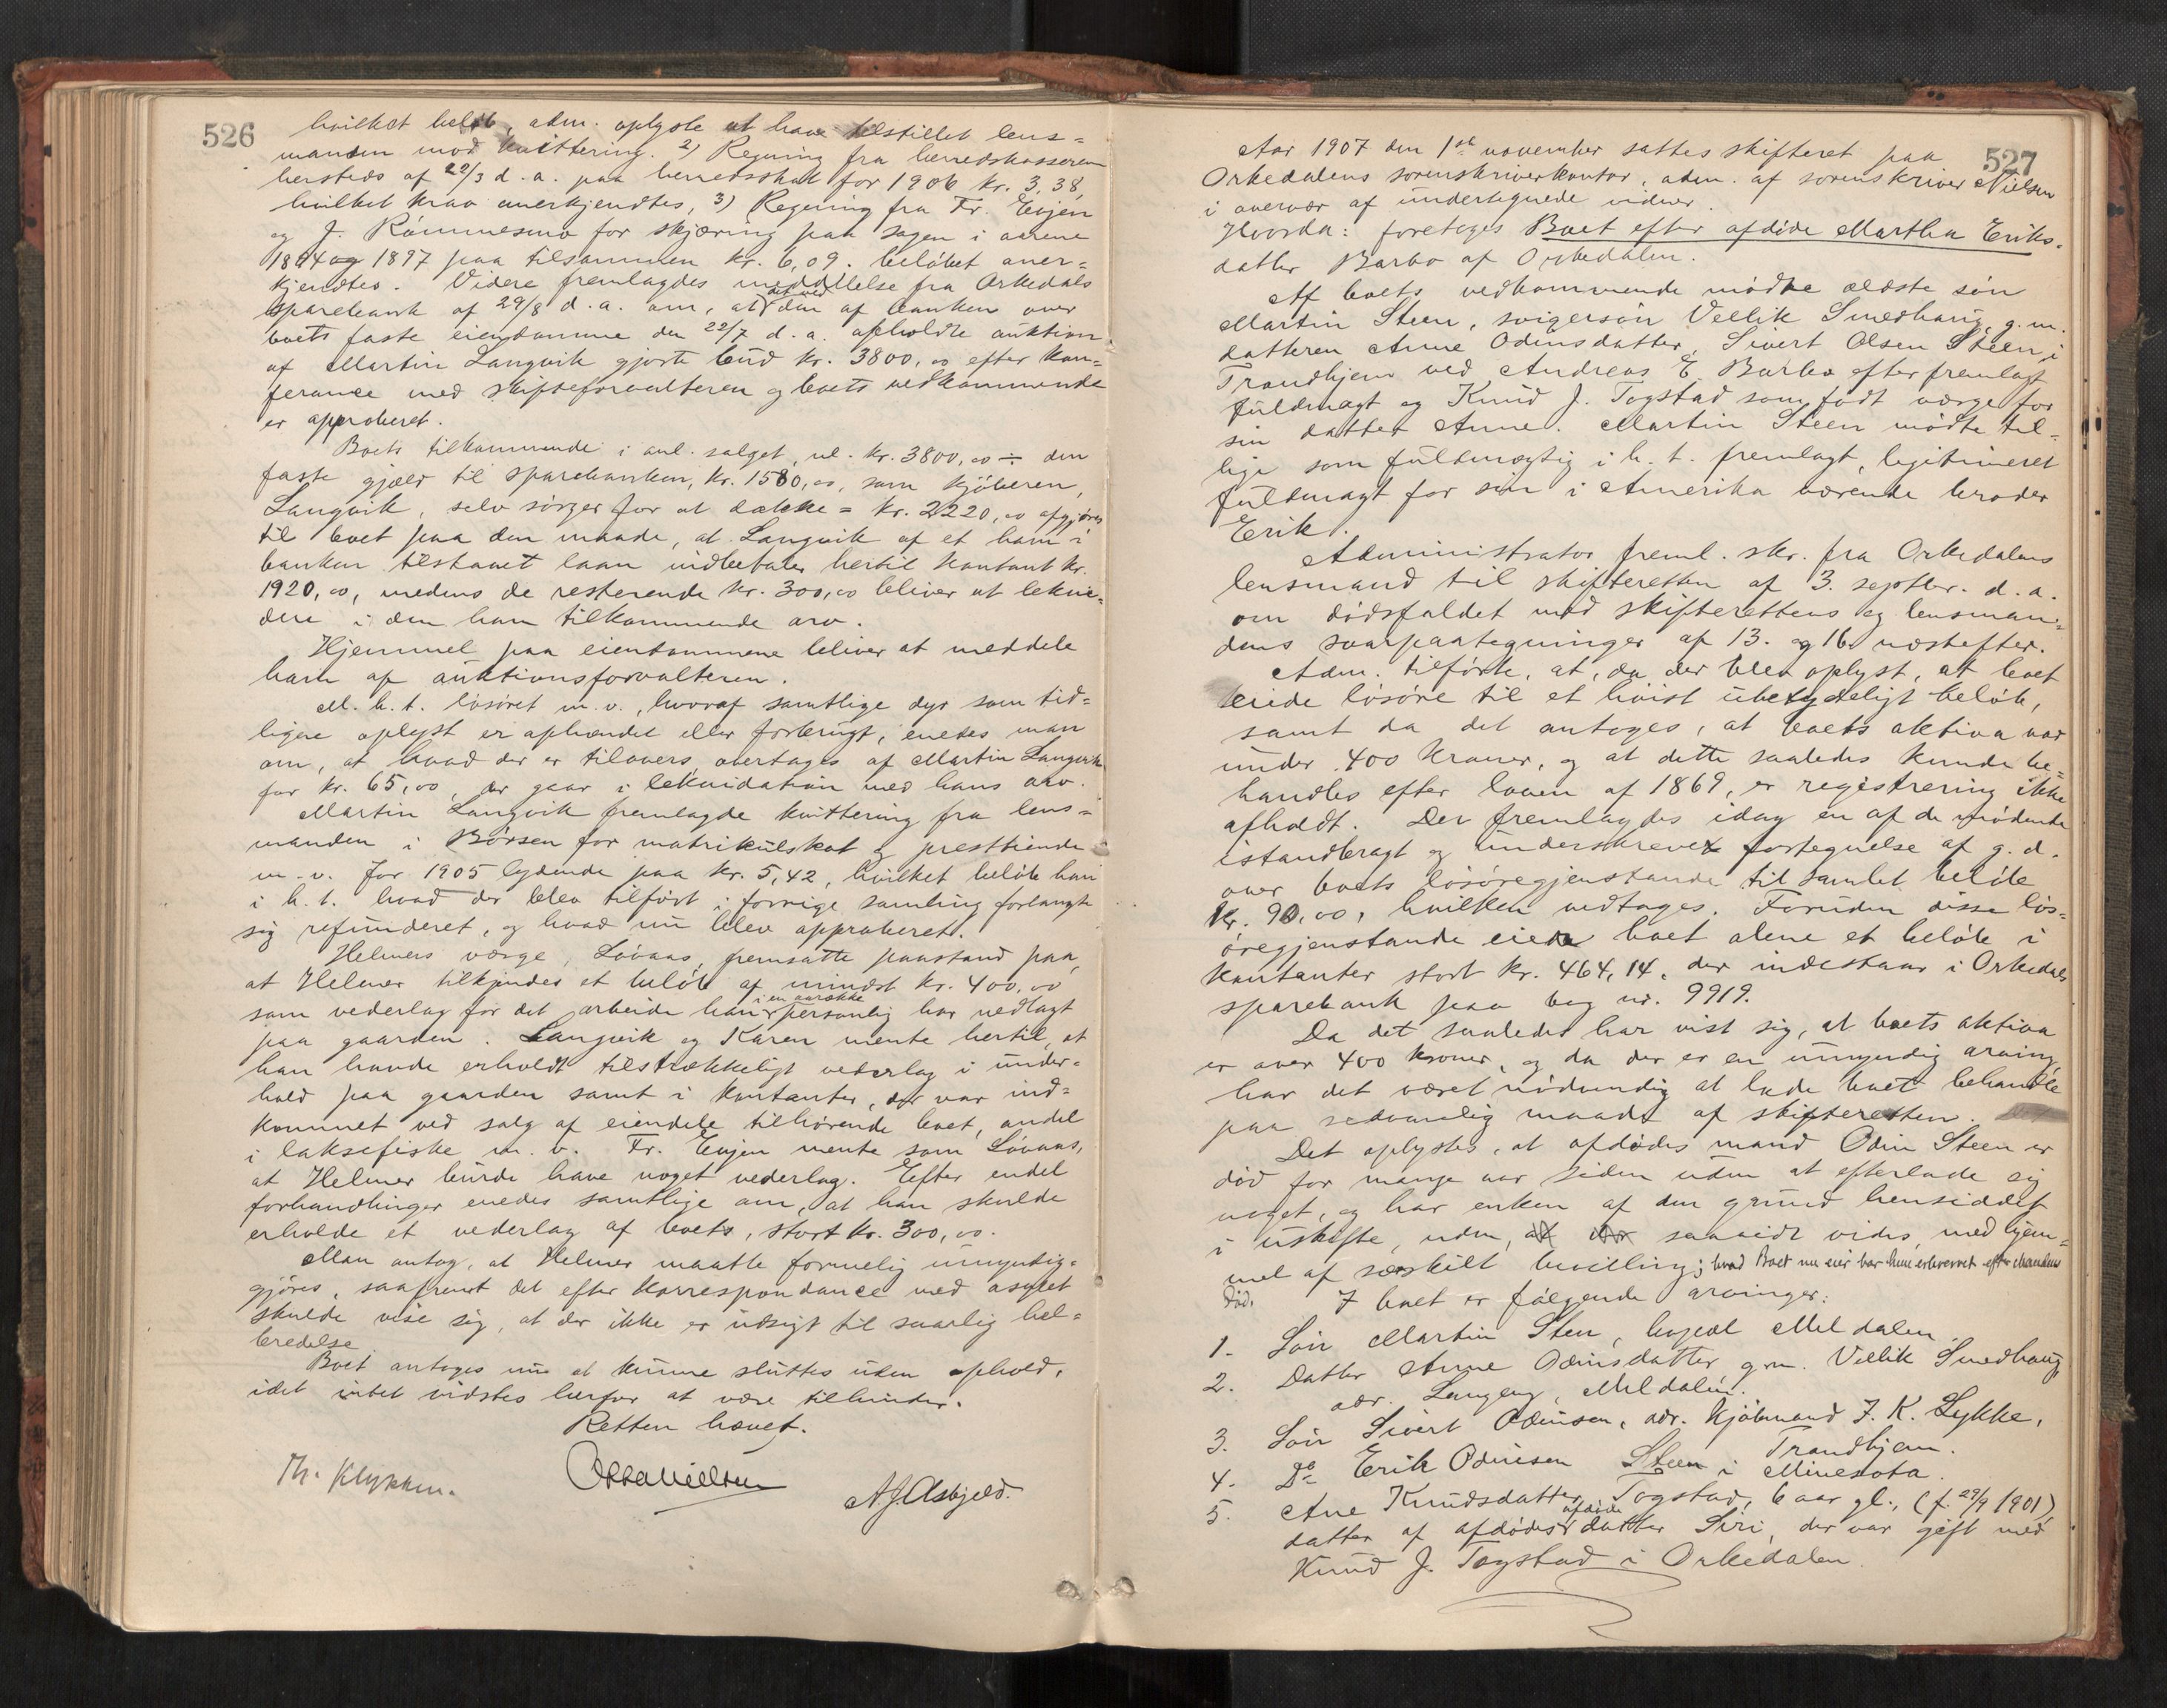 526
hvilket beløb, adm. oplyste at have tilstillet lens=
manden mod kvittering. 2) Regning fra herredskassereren
hersteds af 22/3 d. a. paa herredsskat for 1906 kr. 3,38,
hvilket krav anerkjendtes, 3) Regning fra Fr. Evjen
og J. Rømmesmo for skjæring paa sagen i aarene
1894 og 1897 paa tilsammen kr. 6,09. beløbet aner=
kjendtes. Videre fremlagdes meddelelse fra Orkedals
sparebank af 29/8 d. a. om, at det ved den af banken over
boets faste eiendomme den 22/7 d. a. afholdte auktion
af Martin Langvik gjorte bud kr. 3800,00 efter kon=
ferance med skifteforvalteren og boets vedkommende
er approberet.
Boets tilkommende i anl. salget, nl. kr. 3800,00 ÷ den
faste gjæld til sparebanken, kr. 1580,00, som kjøberen,
Langvik, selv sørger for at dække = kr. 2220,00 afgjøres
til boet paa den maade, at Langvik af et ham i
banken tilstaaet laan indbetaler hertil kontant kr.
1920,00, medens de resterende kr. 300,00 bliver at lekvi=
dere i den ham tilkommende arv.
Hjemmel paa eiendommene bliver at meddele
ham af auktionsforvalteren.
M. h. t. løsøret m. v., hvoraf samtlige dyr som tid=
ligere oplyst er afhændet eller forbrugt, enedes man
om, at hvad der er tilovers overtages af Martin Langvik
for kr. 65,00, der gaar i lekvidation med hans arv.
Martin Langvik fremlagde kvittering fra lens=
manden i Børsen for matrikulskat og presttiende
m. v. for 1905 lydende paa kr. 5,42, hvilket beløb han
i h. t. hvad der blev tilført i forrige samling forlangte
sig refunderet, og hvad nu blev approberet.
Helmers værge, Løvaas, fremsatte paastand paa,
at Helmer tilkjendes et beløb af mindst kr. 400,00
som vederlag for det arbeide han i en aarrække personlig har nedlagt
paa gaarden. Langvik og Karen mente hertil, at
han havde erholdt tilstrækkeligt vederlag i under=
hold paa gaarden samt i kontanter, der var ind=
kommet ved salg af eiendele tilhørende boet, andel
i laksefiske m. v. Fr. Evjen mente som Løvaas,
at Helmer burde have noget vederlag. Efter endel
forhandlinger enedes samtlige om, at han skulde
erholde et vederlag af boets, stort kr. 300,00.
Man antog, at Helmer maatte formelig umyndig=
gjøres, saafremt det efter korrespondance med asylet
skulde vise sig, at der ikke er udsigt til snarlig hel=
bredelse
Boet antoges nu at kunne sluttes uden ophold,
idet intet vidstes herfor at være tilhinder.
Retten hævet.
Th. Klykken.
Otto Nielsen
A J Asbjeld.
527
Aar 1907 den 1ste november sattes skifteret paa
Orkedalens sorenskriverkontor, adm. af sorenskriver Nielsen
i overvær af undertegnede vidner.
Hvorda: foretoges Boet efter afdøde Martha Eriks=
datter Barbo af Orkedalen.
Af boets vedkommende mødte ældste søn
Martin Steen, svigersøn Vellik Smedhaug, g. m.
datteren Anne Odinsdatter, Sivert Olsen Steen i
Trondhjem ved Andreas E. Barbo efter fremlagt
fuldmagt og Knud J. Togstad som født værge for
sin datter Anne. Martin Steen mødte til=
lige som fuldmægtig i h. t. fremlagt, legitimeret
fuldmagt for sin i Amerika værende broder
Erik.
Administrator freml. skr. fra Orkedalens
lensmand til skifteretten af 3. septbr. d. a.
om dødsfaldet med skifterettens og lensman=
dens svarpaategninger af 13. og 16. næstefter.
Adm. tilførte, at, da der blev oplyst, at boet
eiede løsøre til et høist ubetydeligt beløb,
samt da det antoges, at boets aktiva var
under 400 kroner, og at dette saaledes kunde be=
handles efter loven af 1869, er registrering ikke
afholdt. Der fremlagdes idag en af de mødende
istandbragt og underskrevet fortegnelse af g. d.
over boets løsøregjenstande til samlet beløb
kr. 90,00, hvilken vedtoges. Foruden disse løs=
øregjenstande eier boet alene et beløb i
kontanter stort kr. 464,14, der indestaar i Orkedals
sparebank paa bog nr. 9919.
Da det saaledes har vist sig, at boets aktiva
er over 400 kroner, og da der er en umyndig arving,
har det været nødvendig at lade boet behandle
paa sedvanlig maade af skifteretten.
Det oplystes, at afdødes mand Odin Steen er
død for mange aar siden uden at efterlade sig
noget, og har enken af den grund hensiddet
i uskifte, uden, saavidt vides, med hjem=
mel af særskilt bevilling; hvad Boet nu eier har hun erhvervet efter Mandens
Død.
I boet er følgende arvinger:
1. Søn Martin Steen, bopæl Meldalen.
2. Datter Anne Odinsdatter g. m. Vellik Smedhaug,
adr. Langeng, Meldalen.
3. Søn Sivert Odinsen, adr. Kjøbmand J. K. Lykke,
Trondhjem.
4. Do Erik Odinsen Steen i Minesota.
5. Ane Knudsdatter Togstad, 6 aar gl., (f. 29/9 1901)
datter af afdødes afdøde datter Siri, der var gift med
Knud J. Togstad i Orkedalen.